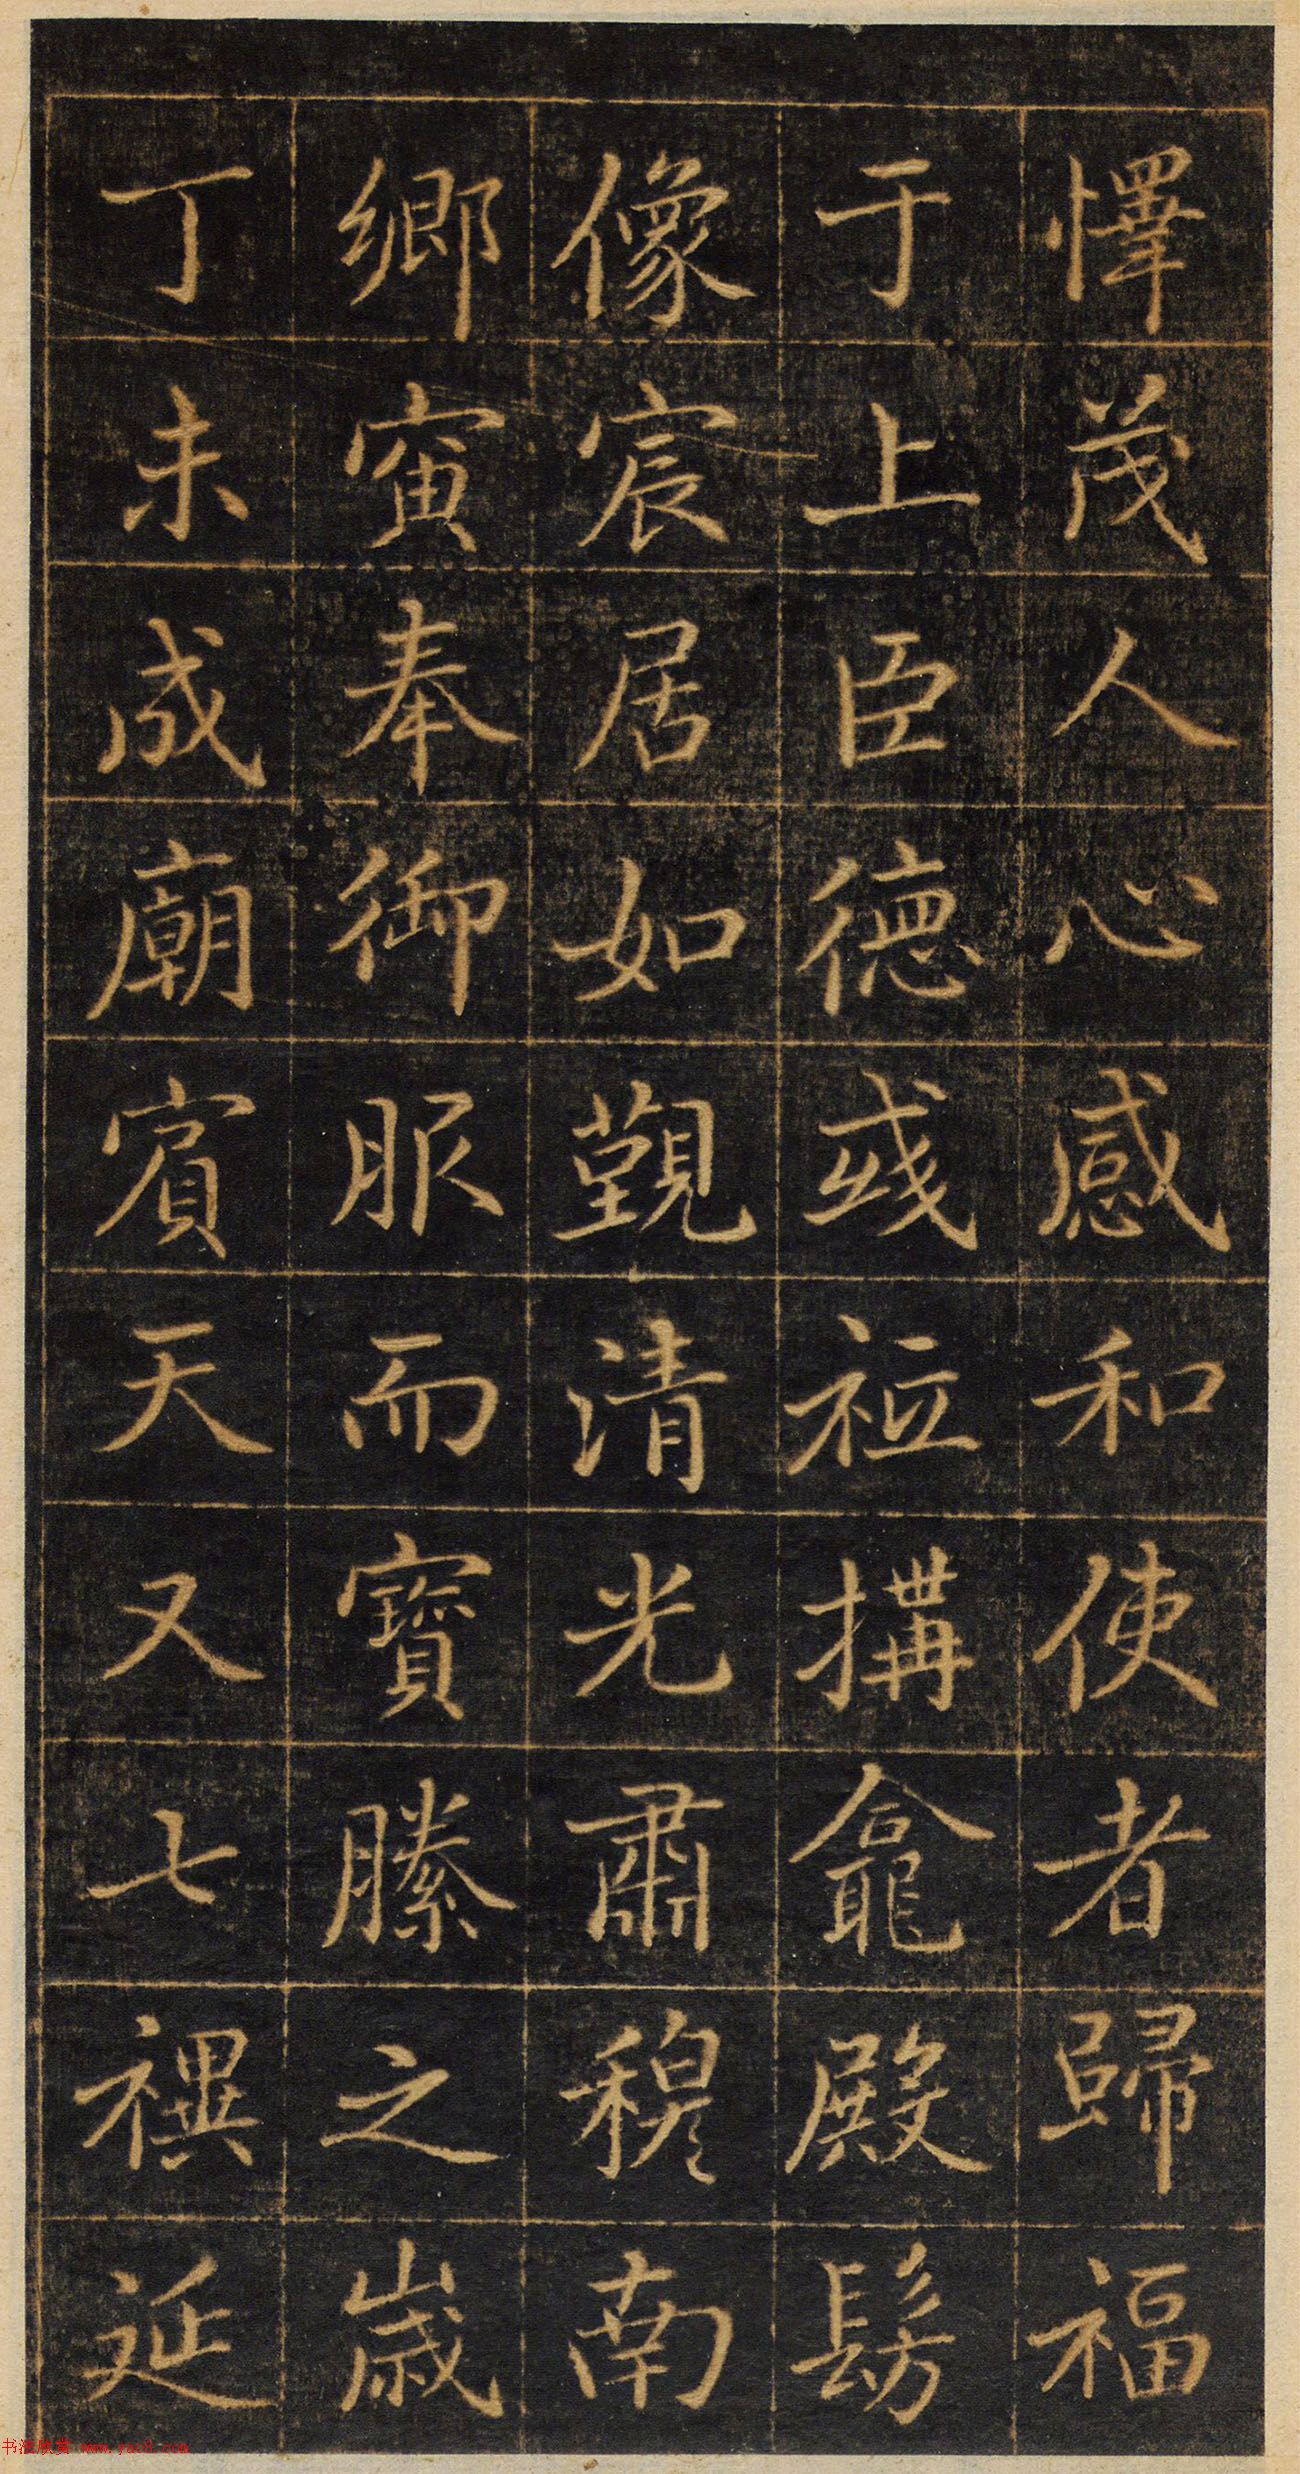 懌茂人心感和使者歸福
于上臣德彧祗搆龕殿髣
像宸居如覲清光肅穆南
鄉寅奉御服而寶滕之歲
丁未成廟賓天又七禩延
书法欣赏 www.yac8.com